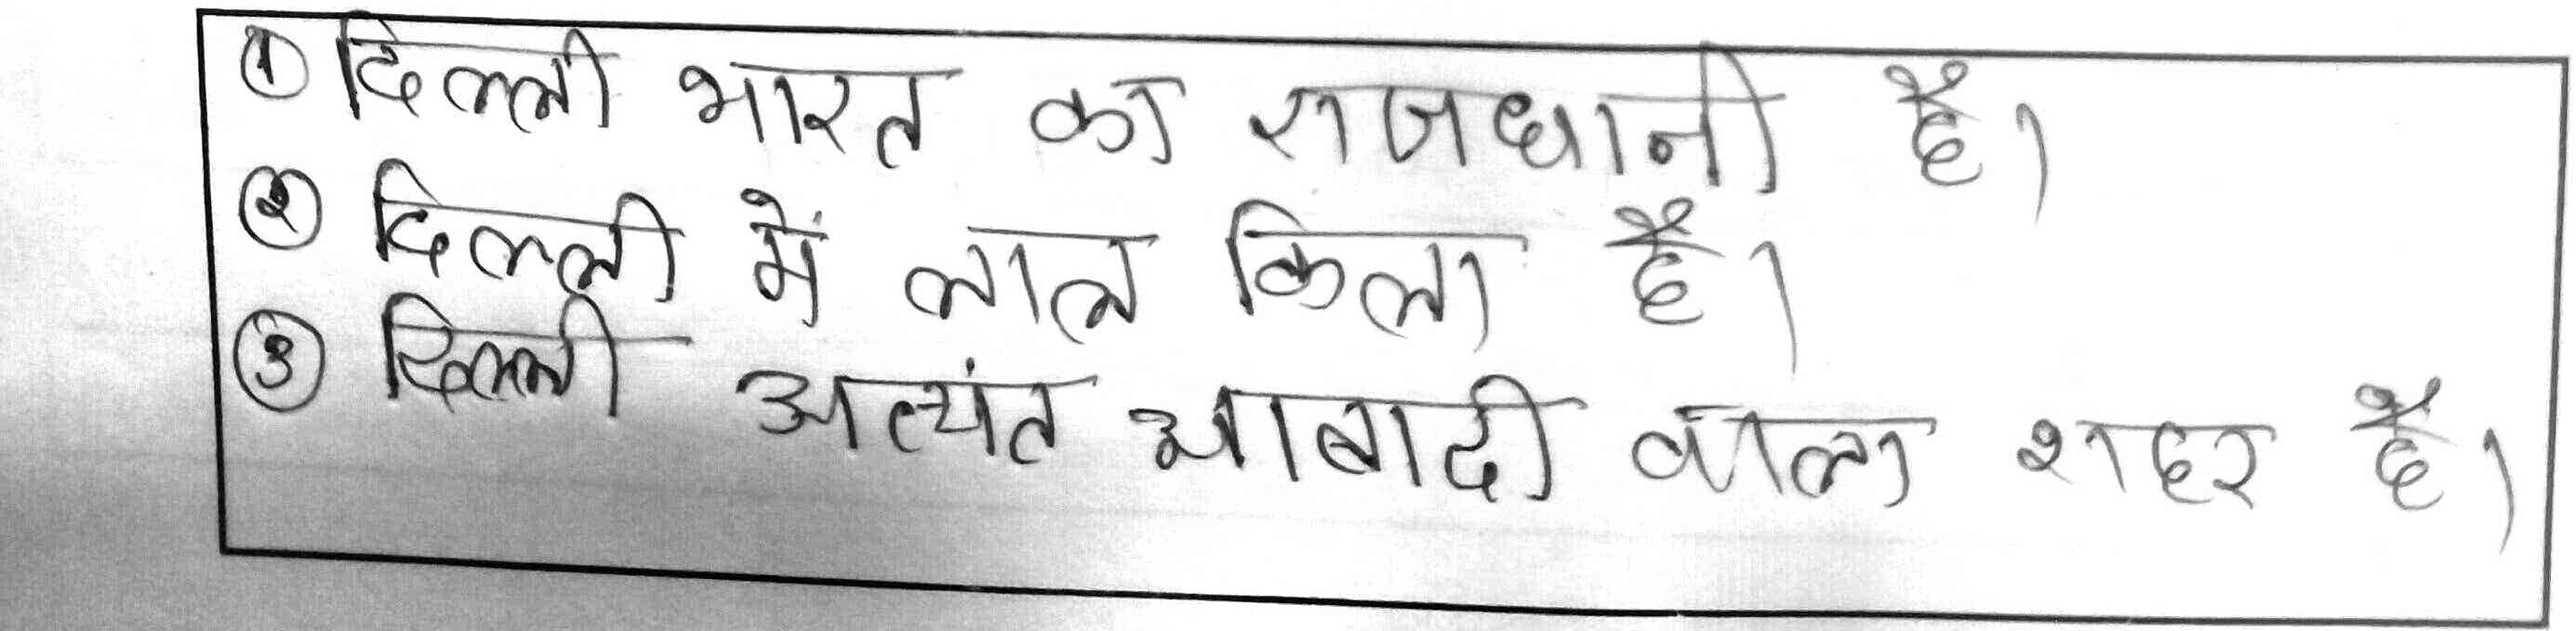 ① दिल्ली भारत का राजधानी है।
② दिल्ली में लाल किला है।
③ दिल्ली अत्यंत आबादी वाला शहर है।